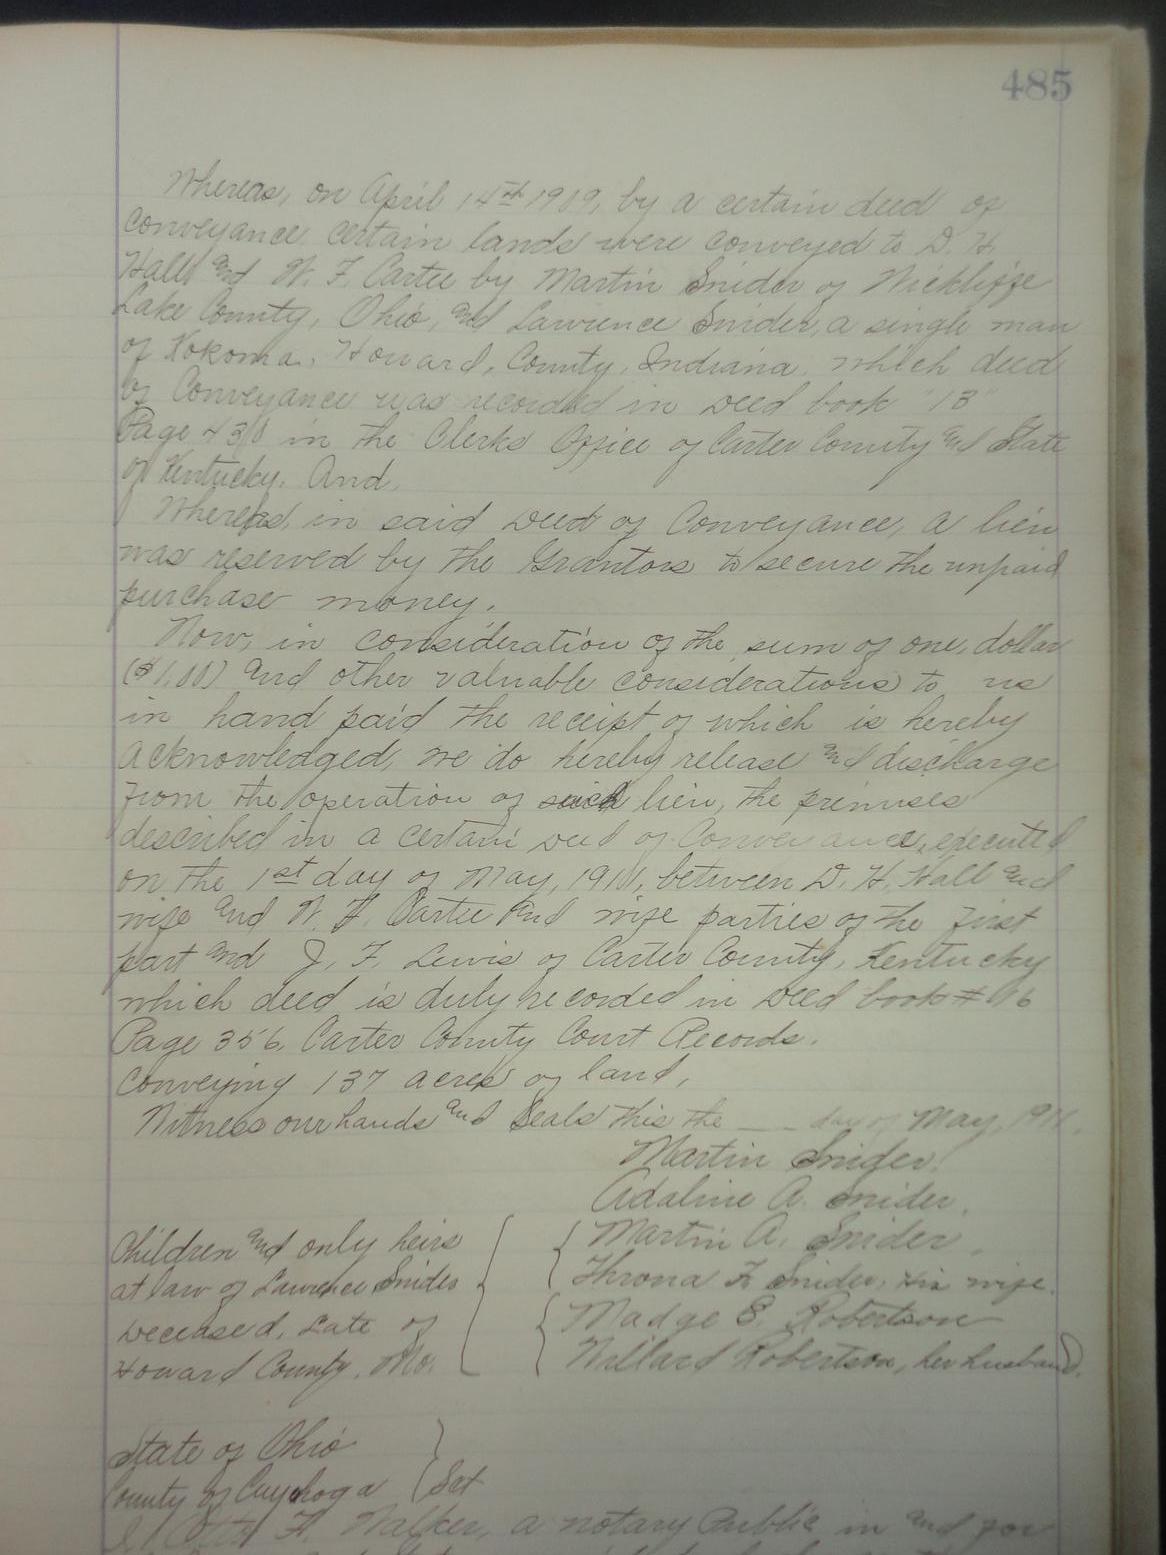 485
Whereas, on April 14th 1909, by a certain deed of
conveyance certain lands were conveyed to D. H.
Hall and W. F. Cartee by Martin Snider of Wickliffe
Lake County, Ohio, and Lawrence Snider, a single man
of Kokoma, Howard, County, Indiana, which deed
of Conveyance was recorded in Deed book "13"
Page in the Clerks Office of Carter County and State
of Kentucky. And,
Whereas, in said Deed of Conveyance, a lien
was reserved by the Grantors to secure the unpaid
purchase money.
Now, in consideration of the sum of one, dollar
($1,00) and other valuable considerations to us
in hand paid the receipt of which is hereby
acknowledged, we do hereby release and discharge
from the operation of said lien, the premises
described in a certain Deed of Conveyance, executed
on the 1st day of May, 1911, between D. H. Hall and
wife and W. F. Cartee and wife parties of the first
part and J. F. Lewis of Carter County, Kentucky
which deed is duly recorded in Deed book # 16
Page 356, Carter County Court Records.
Conveying 137 acres of land,
Witness our hands and Seals this the ____ day of May, 1911.
Martin Snider.
Adaline A. Snider.
Children and only heirs
at law of Lawrence Snider
Deceased, Late of
Howard County, Mo.
Martin A. Snider
Throna F. Snider, his wife.
Madge E. Robertson
Willard Robertson, her husband.
State of Ohio
County of Cuyahoga } Sct
I, Otto F. Walker, a notary Public in and for